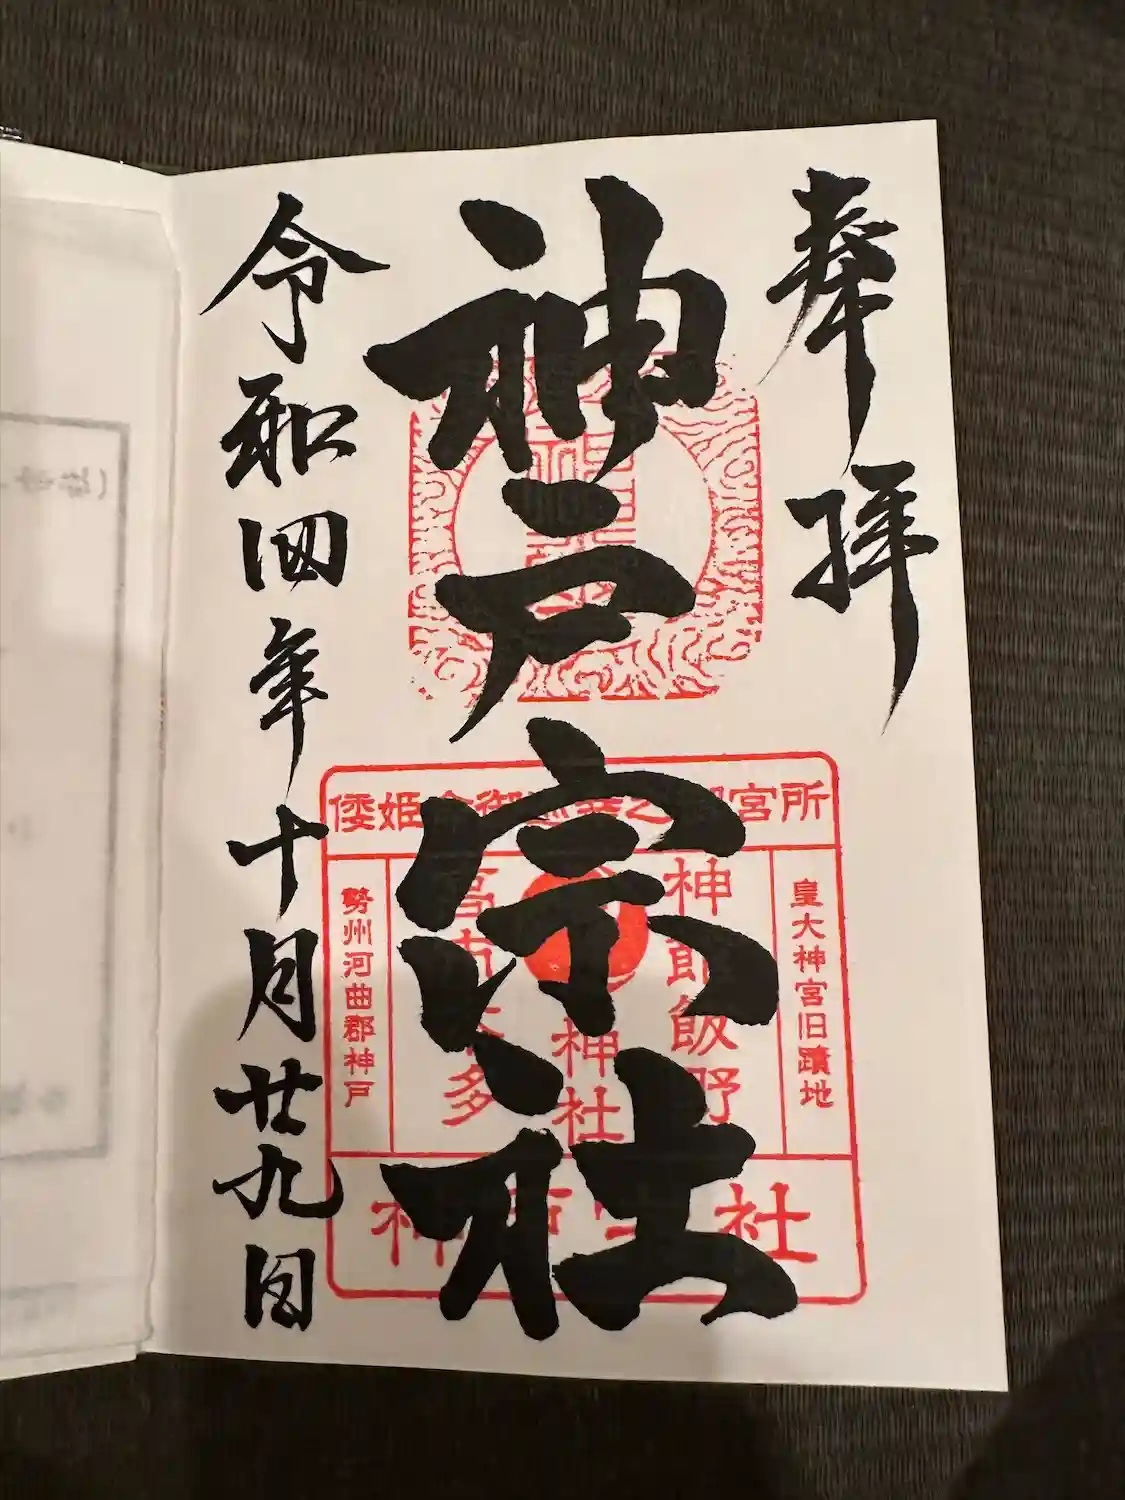 奉拝
神戸宗社
令和四年十月廿九日
倭姫命御巡幸之御宮所
皇大神宮旧蹟地
神館飯野
神社
高市本多
勢州河曲郡神戸
神戸宗社